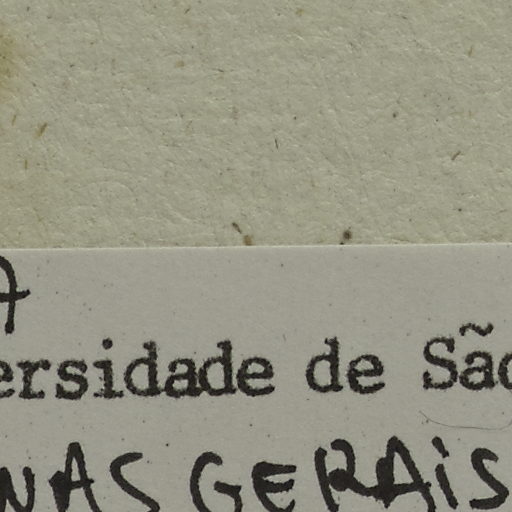 ersidade de São
NAS GERAIS